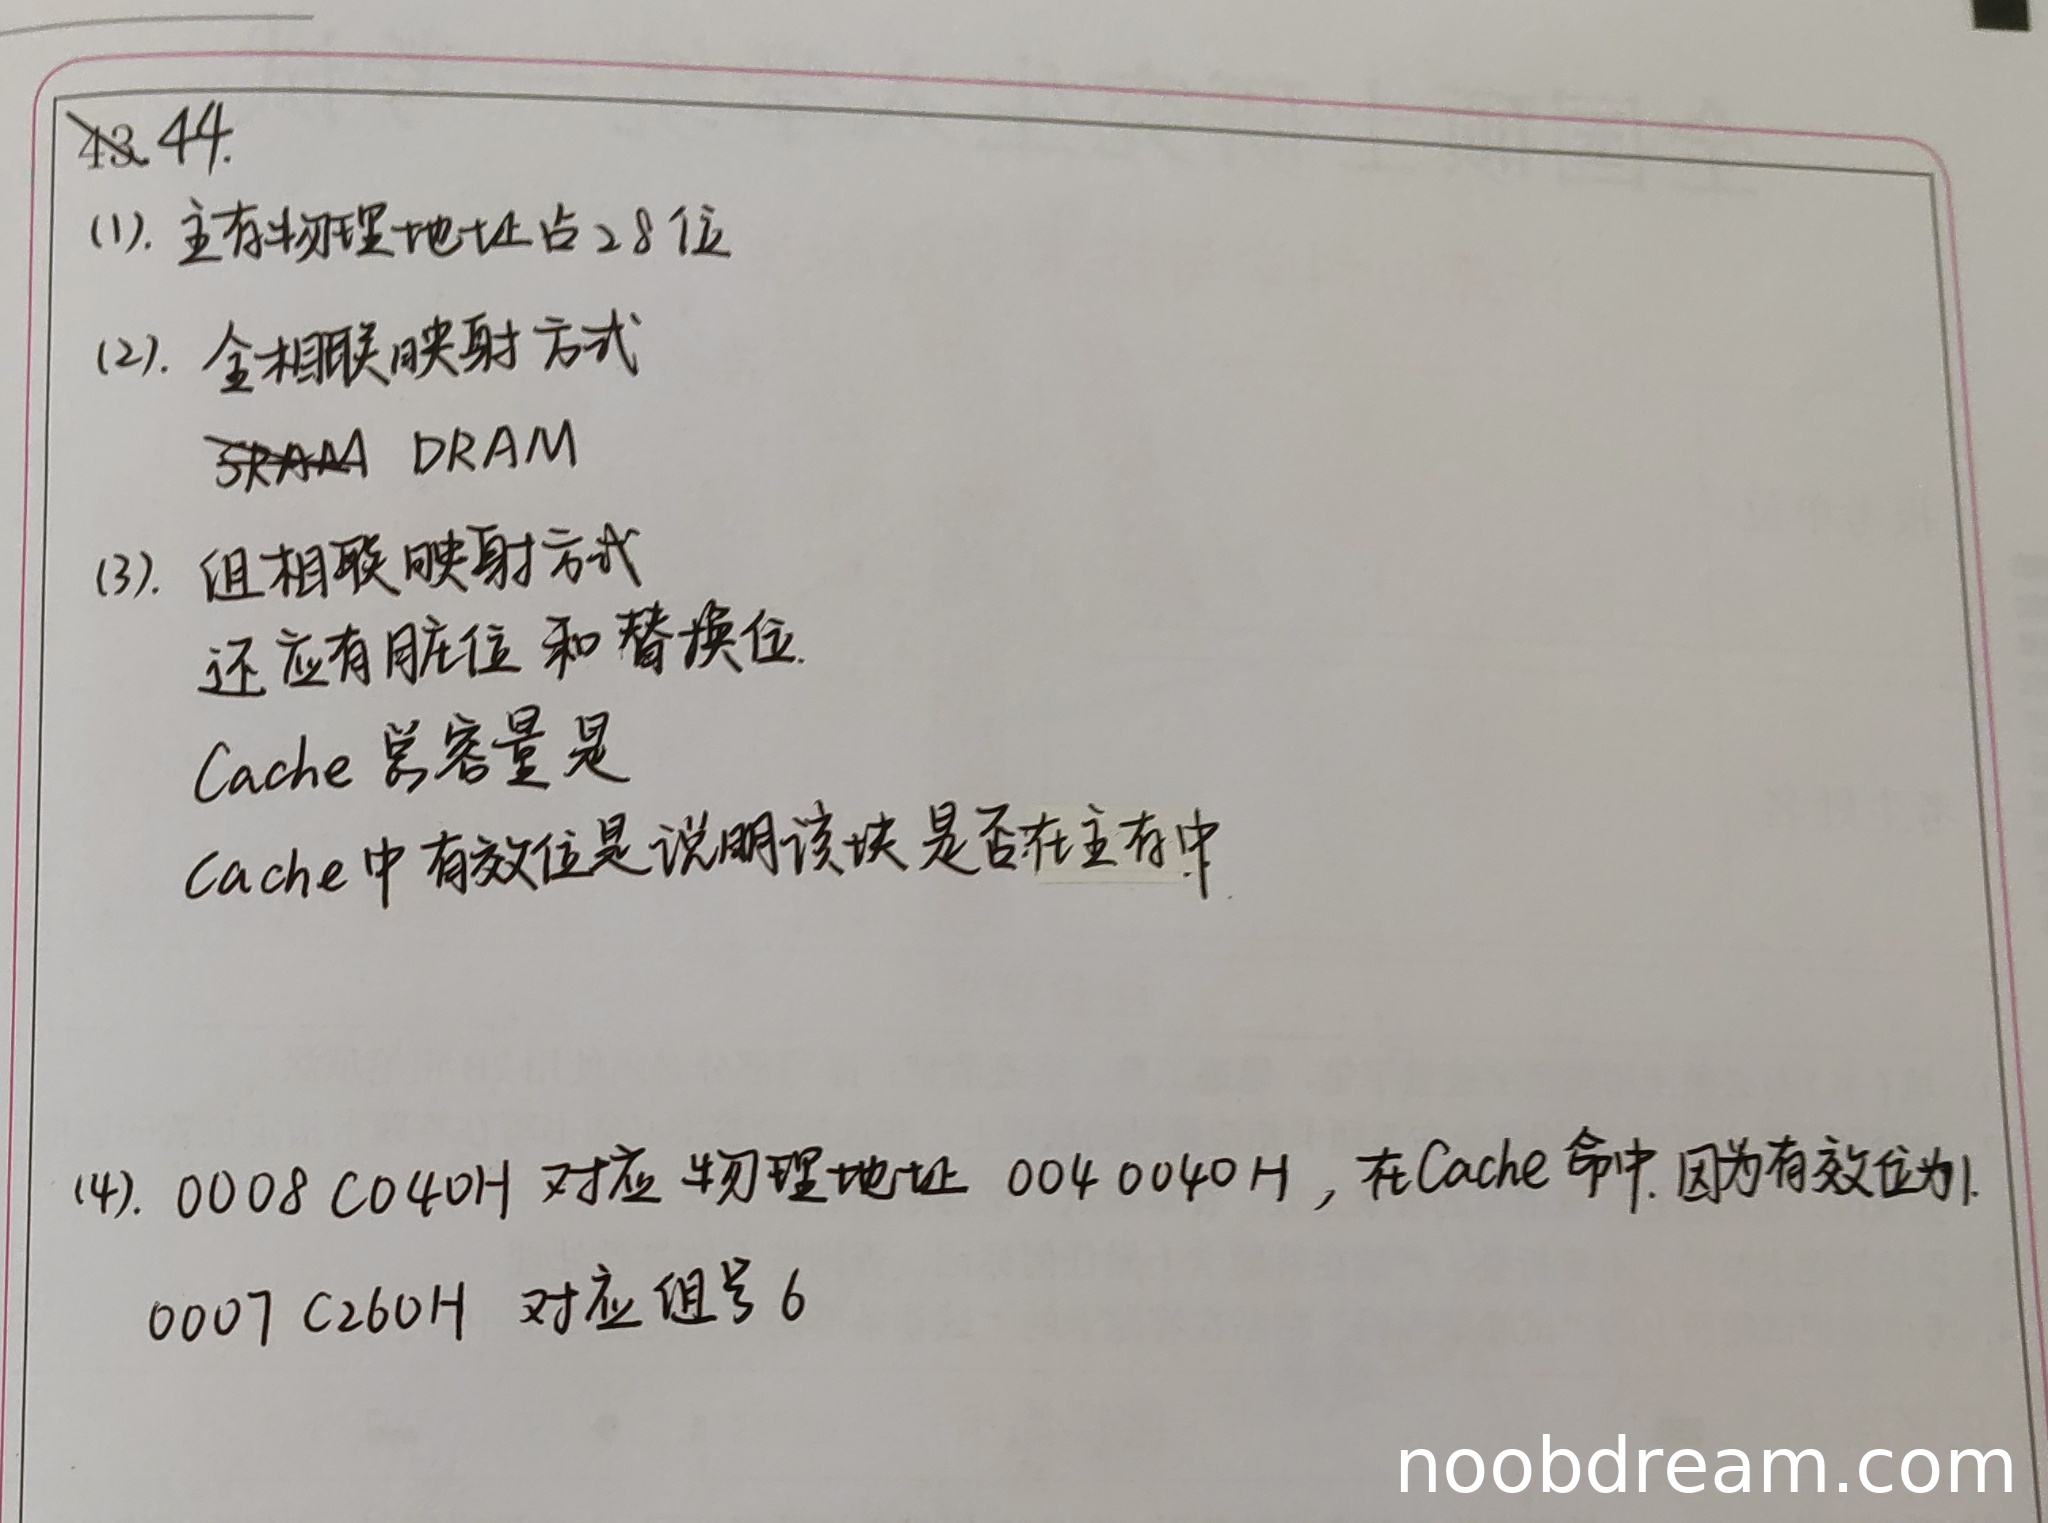 43. 44.
(1). 主存物理地址占28位
(2). 全相联映射方式
SRAM DRAM
(3). 组相联映射方式
还应有脏位和替换位.
Cache总容量是
Cache中有效位是说明该块是否在主存中.
(4). 0008 C040H 对应物理地址 004 0040H, 在Cache命中. 因为有效位为1.
0007 C260H 对应组号6
noobdream.com